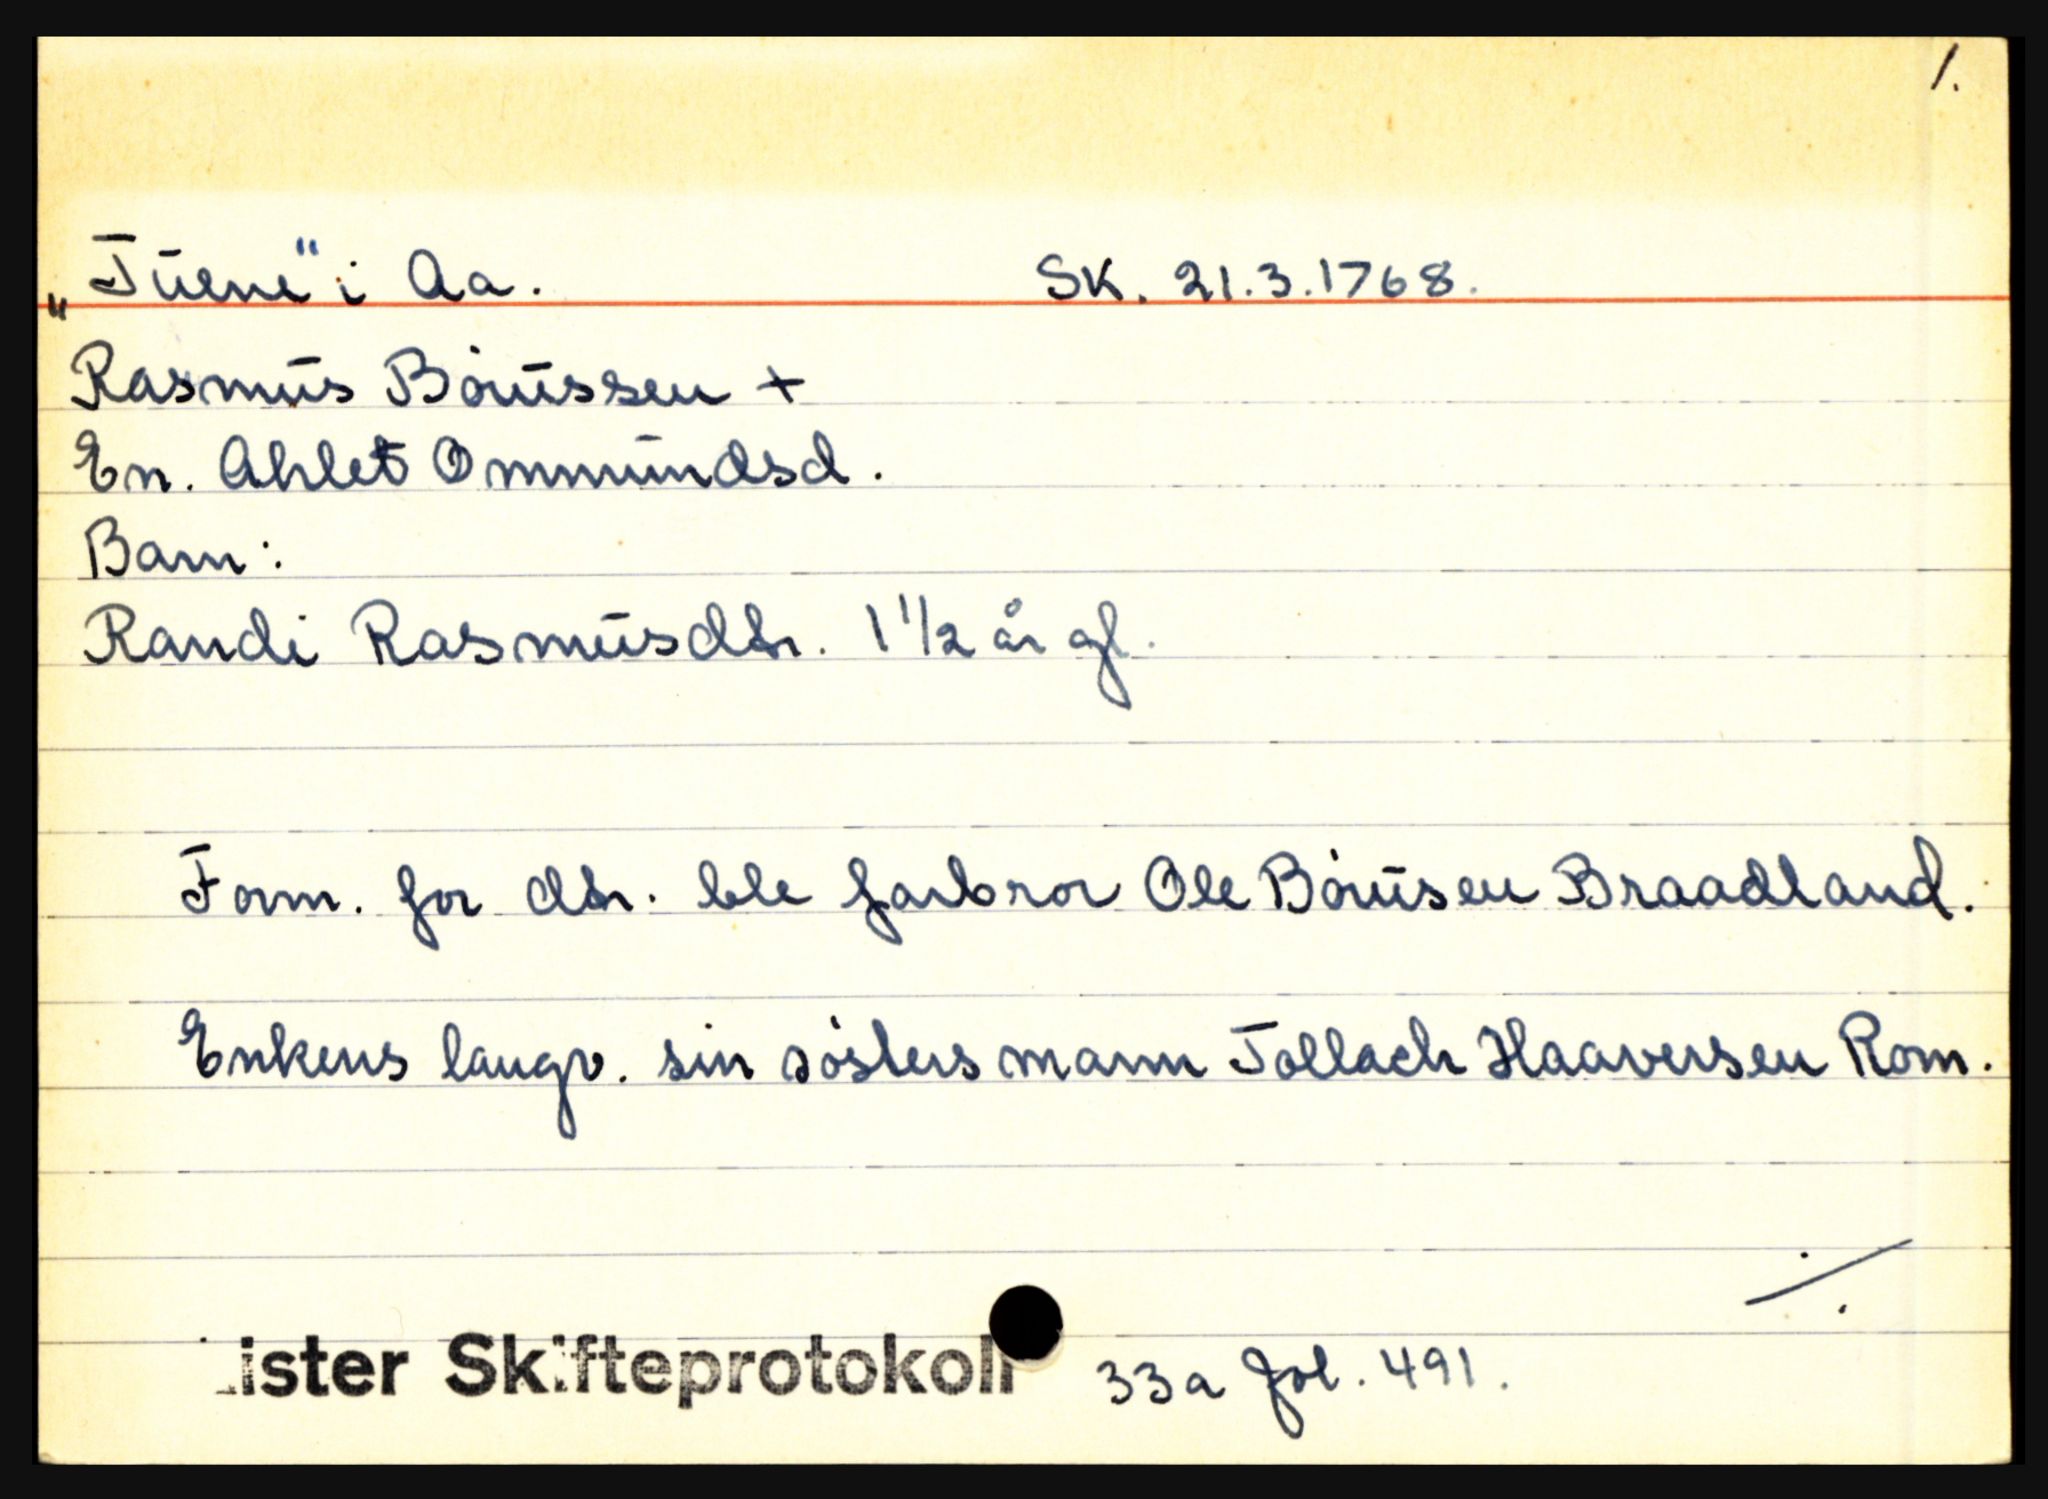 1.
„Tuene" i Aa. SK. 21.3.1768.
Rasmus Börussen +
En. Ahlet Ommundsd.
Barn:
Randi Rasmusdtr. 1 1/2 år gl.
Form. for dtr. ble farbror Ole Börusen Braadland.
Enkens laugv. sin sösters mann Tollach Haaversen Rom.
Lister Skifteprotokoll 33a fol. 491.